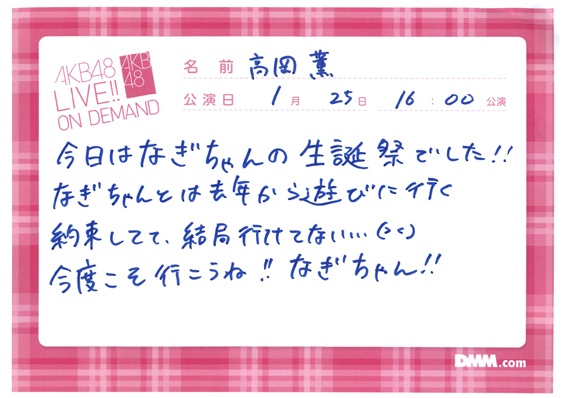 AKB48
LIVE!!
ON DEMAND
AKB
48
名前 高岡 薫
公演日 1月 25日 16:00 公演
今日はなぎちゃんの生誕祭でした!!
なぎちゃんとは去年から遊びに行く
約束してて、結局行けてない…(><)
今度こそ行こうね!! なぎちゃん!!
DMM.com